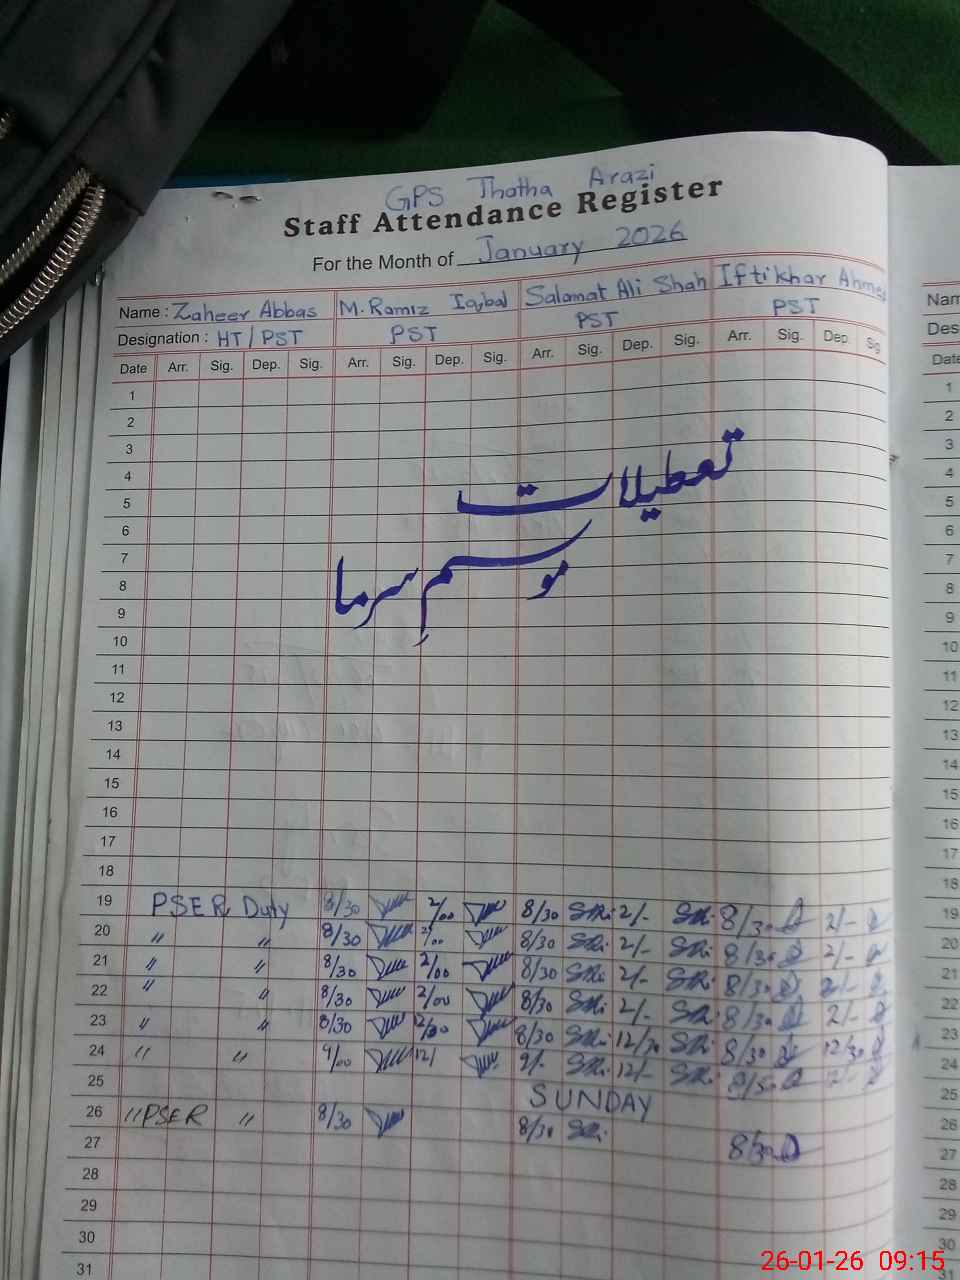 GPS Thatha Arazi
Staff Attendance Register
For the Month of January 2026
Name : Zaheer Abbas M. Ramiz Iqbal Salamat Ali Shah Iftikhar Ahmed
Designation : HT / PST PST PST PST
Date Arr. Sig. Dep. Sig. Arr. Sig. Dep. Sig. Arr. Sig. Dep. Sig. Arr. Sig. Dep. Sig
1
2
3
4
تعطیلات
5
6
7
موسمِ سرما
8
9
10
11
12
13
14
15
16
17
18
19 PSER Duty 8/30 2/00 8/30 2/- 8/30 2/-
20 〃 〃 8/30 2/00 8/30 2/- 8/30 2/-
21 〃 〃 8/30 2/00 8/30 2/- 8/30 2/-
22 〃 〃 8/30 2/00 8/30 2/- 8/30 2/-
23 〃 〃 8/30 12/00 8/30 12/30 8/30 12/30
24 〃 〃 9/00 12/ 9/- 12/- 8/30 12/-
25 SUNDAY
26 〃 PSER 〃 8/30 8/30 8/30
27
28
29
30
31
Nam
Des
Date
1
2
3
4
5
6
7
8
9
10
11
12
13
14
15
16
17
18
19
20
21
22
23
24
25
26
27
28
29
30
31
26-01-26 09:15